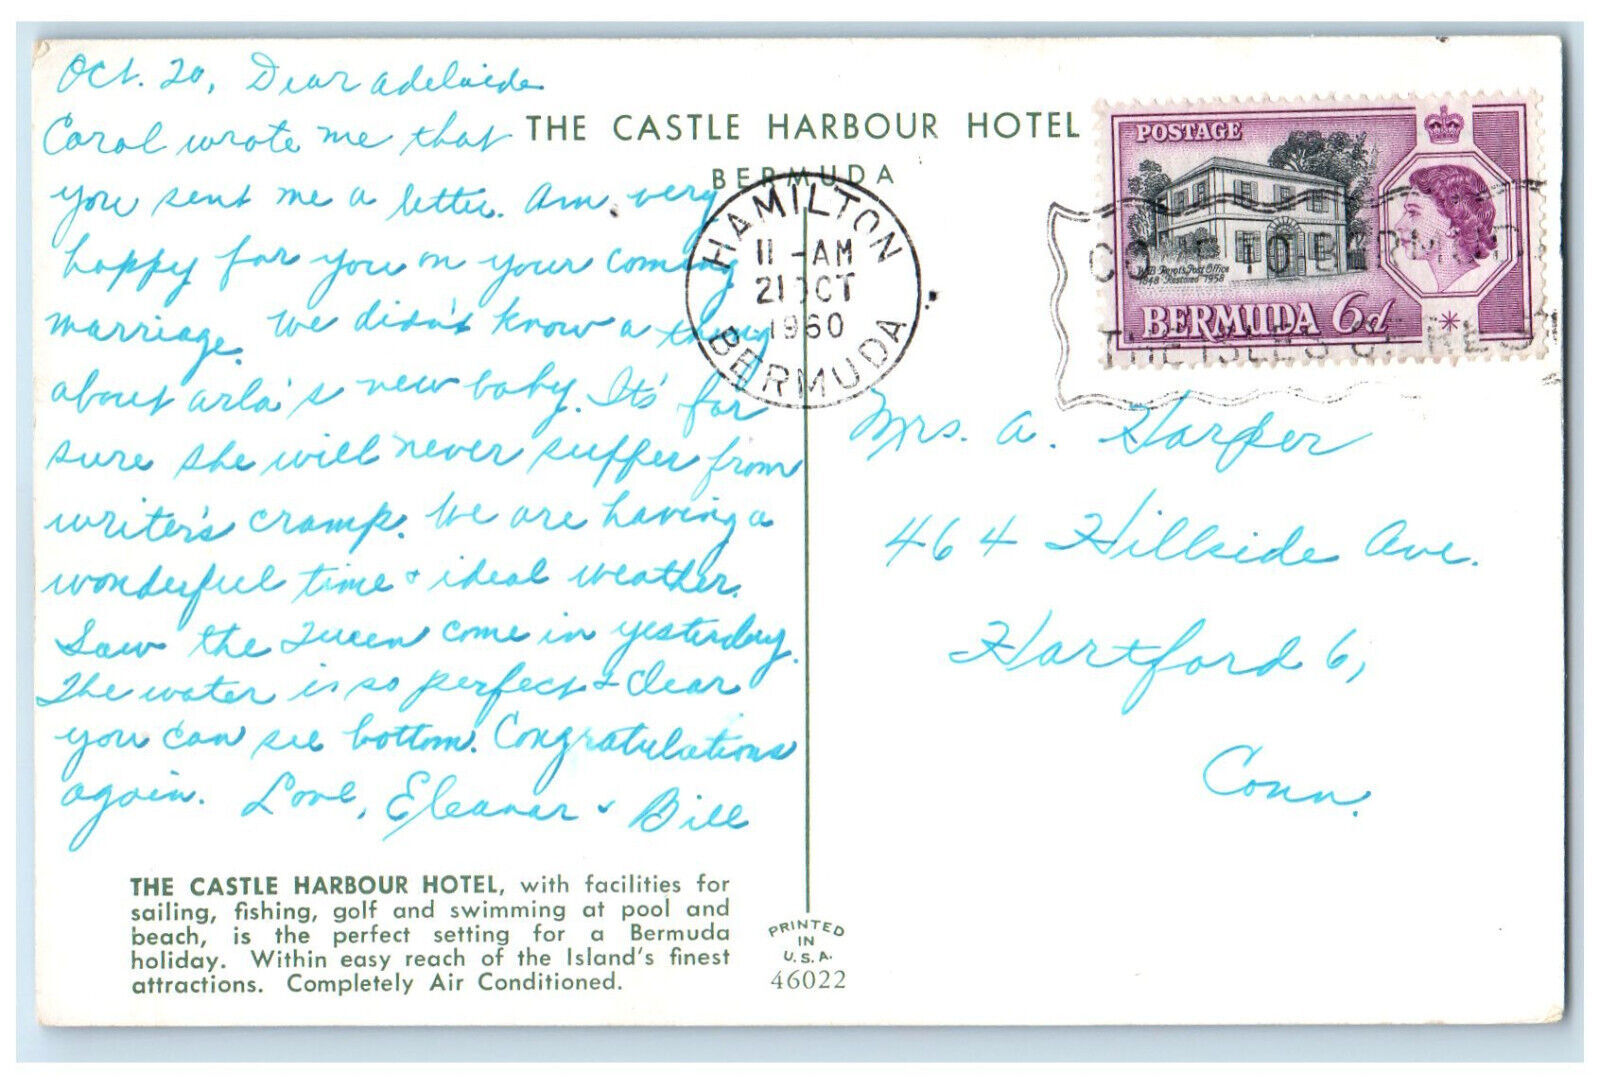 Oct. 20, Dear Adelaide
Carol wrote me that
you sent me a letter. Am very
happy for you on your coming
marriage. We didn't know a thing
about Arla's new baby. It's for
sure she will never suffer from
writer's cramp. We are having a
wonderful time & ideal weather.
Saw the Queen come in yesterday.
The water is so perfect & clear
you can see bottom. Congratulations
again. Love, Eleanor & Bill
THE CASTLE HARBOUR HOTEL
BERMUDA
HAMILTON
11 - AM
21 OCT
1960
BERMUDA
POSTAGE
W.B. Perot's Post Office
1848 Restored 1958
BERMUDA 6d
COME TO BERMUDA
THE ISLES OF REST
Mrs. A. Harper
464 Hillside Ave.
Hartford 6,
Conn.
THE CASTLE HARBOUR HOTEL, with facilities for
sailing, fishing, golf and swimming at pool and
beach, is the perfect setting for a Bermuda
holiday. Within easy reach of the Island's finest
attractions. Completely Air Conditioned.
PRINTED
IN
U.S.A.
46022